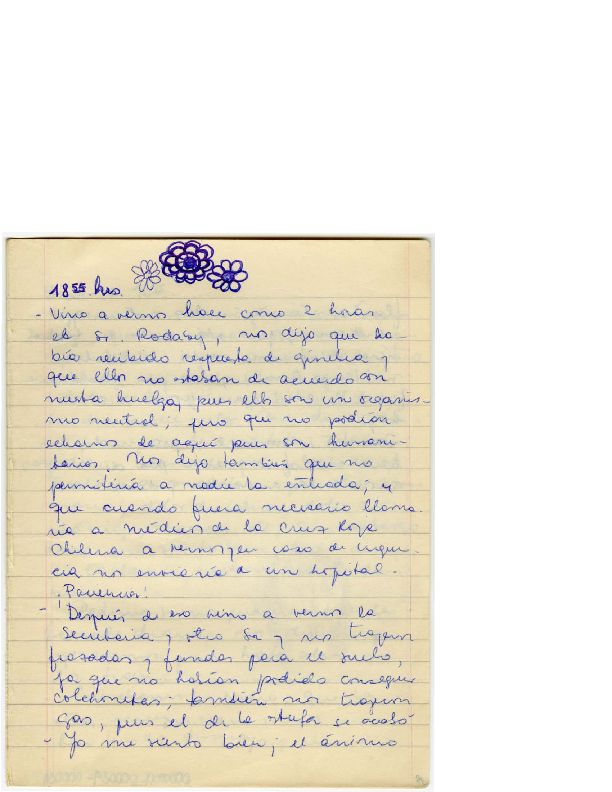 18 55 hrs.
- Vino a vernos hace como 2 horas
el Sr. Rodasy, nos dijo que ha-
bía recibido respuesta de ginebra y
que ellos no staban de acuerdo con
nuestra huelga, pues ellos son un organis-
mo neutral; pero que no podían
echarnos de aquí pues son humani-
tarios. Nos dijo también que no
permitiría a nadie la entrada; y
que cuando fuera necesario llama-
ría a médicos de la Cruz Roja
Chilena a vernos y en caso de urgen-
cia nos enviaría a un hospital.
¡Paciencia!
- Después de eso vino a vernos la
Secretaria y otro Sr y nos trajeron
frazadas y fundas para el suelo,
ya que no habían podido conseguir
colchonetas; también nos trajeron
gas, pues el de la stufa se acabó
- Yo me siento bien; el ánimo